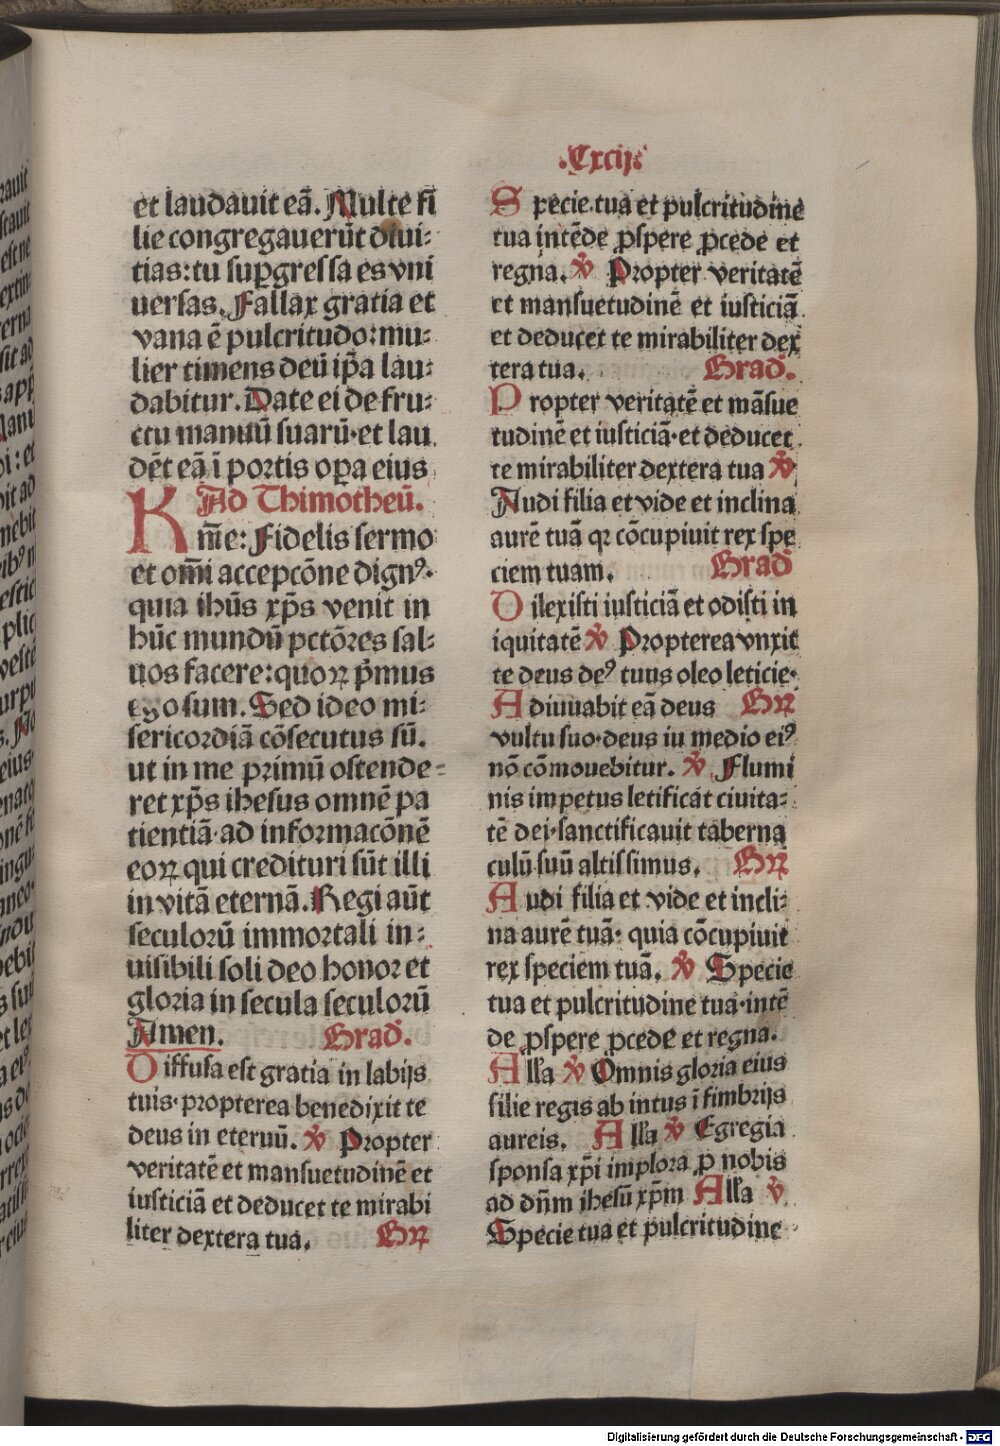 .Cxcij.
et laudauit eā. Multe fi
lie congregauerūt diui:
tias: tu suꝑgressa es vni
uersas. Fallax gratia et
vana ē pulcritudo: mu:
lier timens deū ip̄a lau:
dabitur. Date ei de fru:
ctu manuū suarū·et lau
dēt eā ī portis oꝑa eius
Ad Thimotheū.
K
m̄e: Fidelis sermo
et om̄i accepcōne dignꝰ·
quia ihūs xp̄s venit in
hūc mundū pctōres sal:
uos facere: quoꝝ p̄mus
ego sum. Sed ideo mi:
sericordiā cōsecutus sū.
ut in me primū ostende:
ret xp̄s ihesus omnē pa
tientiā·ad informacōnē
eoꝝ qui credituri sūt illi
in vitā eternā. Regi aūt
seculorū immortali in:
uisibili soli deo honor et
gloria in secula seculorū
Amen. Grad̄.
Diffusa est gratia in labijs
tuis·propterea benedixit te
deus in eternū. ℣ Propter
veritatē et mansuetudinē et
iusticiā et deducet te mirabi
liter dextera tua. Gꝝ
Specie.tua et pulcritudine
tua intēde ꝓspere ꝓcede et
regna. ℣ Propter veritatē
et mansuetudinē et iusticiā
et deducet te mirabiliter dex
tera tua. Grad̄.
Propter veritatē et māsue
tudinē et iusticiā·et deducet
te mirabiliter dextera tua ℣
Audi filia et vide et inclina
aurē tuā qꝛ cōcupiuit rex spe
ciem tuam. Grad̄
Dilexisti iusticiā et odisti in
iquitatē ℣ Propterea vnxit
te deus deꝰ tuus oleo leticie·
Adiuuabit eā deus Gꝝ
vultu suo·deus in medio eiꝰ
nō cōmouebitur. ℣ Flumi
nis impetus letificāt ciuita:
tē dei·sanctificauit taberna
culū suū altissimus. Gꝝ
Audi filia et vide et incli:
na aurē tuā· quia cōcupiuit
rex speciem tuā. ℣ Specie
tua et pulcritudine tua·intē
de ꝓspere ꝓcede et regna.
Alľa ℣ Omnis gloria eius
filie regis ab intus ī fimbrijs
aureis. Alľa ℣ Egregia
sponsa xp̄i implora ꝓ nobis
ad dn̄m ihesū xp̄m Alľa ℣
Specie tua et pulcritudine
Digitalisierung gefördert durch die Deutsche Forschungsgemeinschaft - DFG